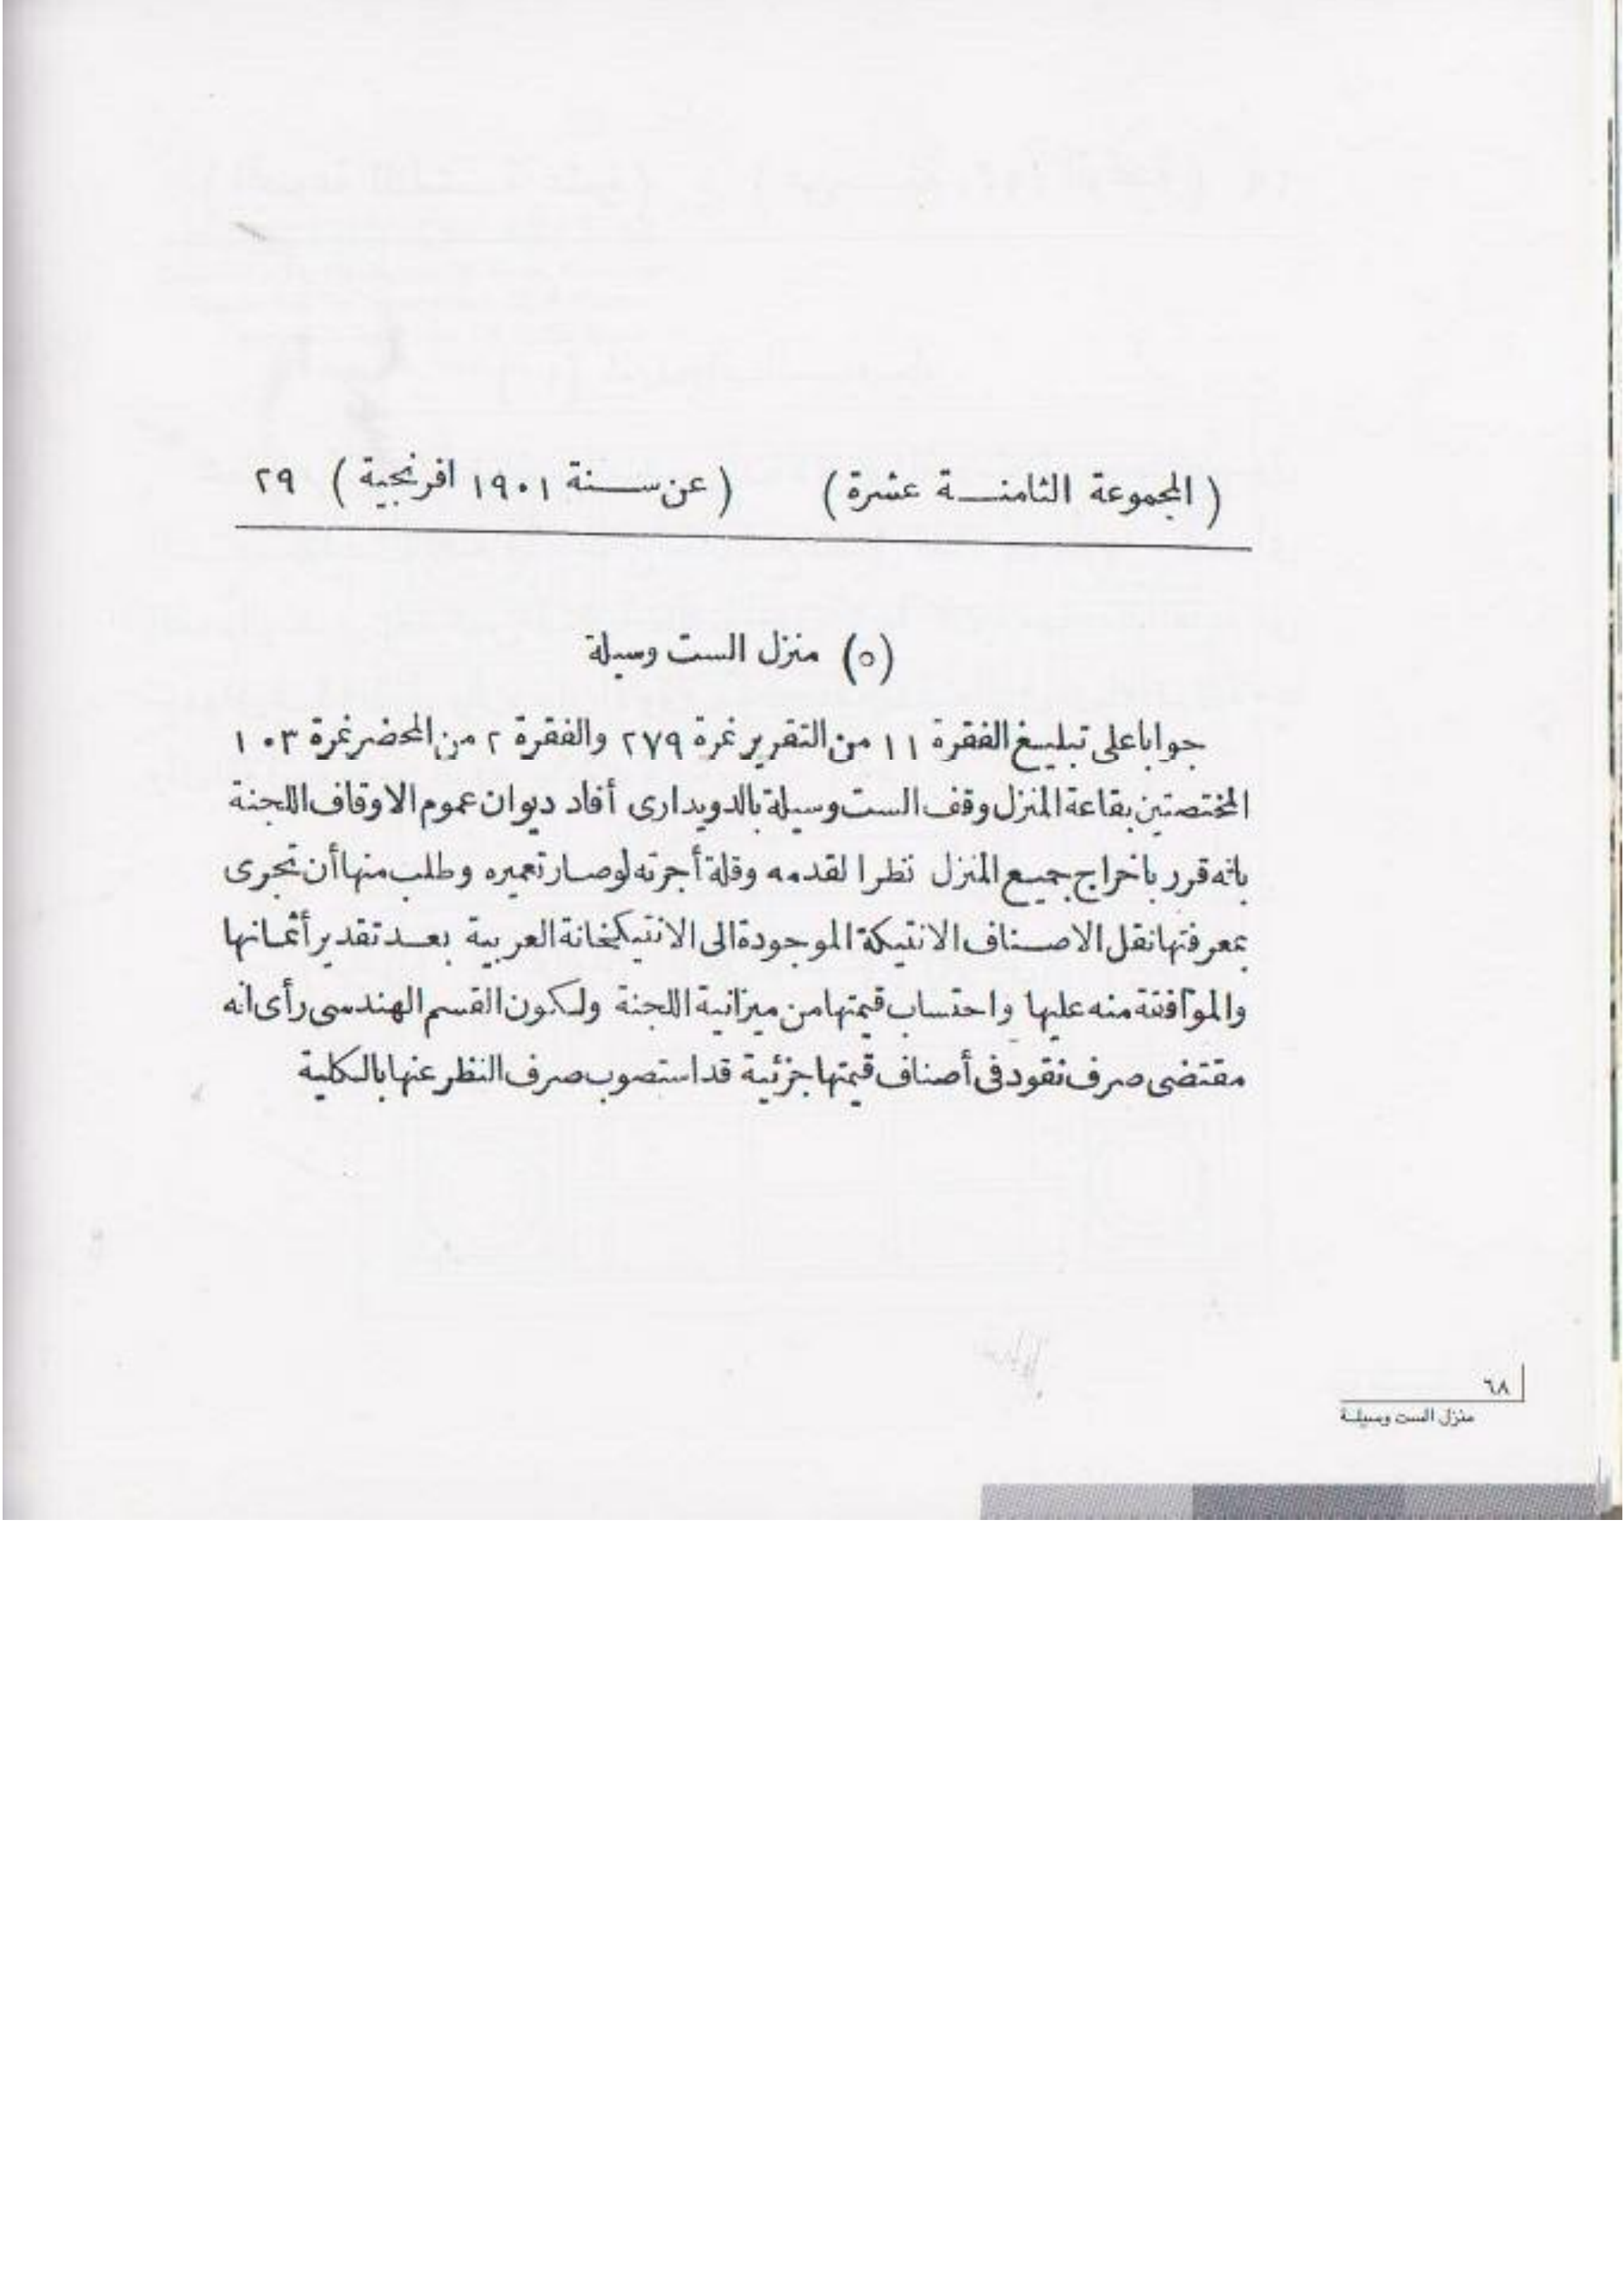 ( المجموعة الثامنـــة عشرة ) ( عن ســـنة ١٩٠١ افرنجية ) ٢٩
(٥) منزل الست وسيلة
جوابا على تبليـغ الفقرة ١١ من التقرير نمرة ٢٧٩ والفقرة ٢ من المحضر نمرة ١٠٣
المختصتين بقاعة المنزل وقف الست وسيلة بالدويدارى أفاد ديوان عموم الاوقاف اللجنة
بانه قرر باخراج جميع المنزل نظرا لقدمه وقلة أجرته لو صار تعميره وطلب منها أن تجرى
بمعرفتها نقل الاصـناف الانتيكة الموجودة الى الانتيكخانة العربية بعـد تقدير أثمـانها
والموافقة منه عليها واحتساب قيمتها من ميزانية اللجنة ولكون القسم الهندسى رأى انه
مقتضى صرف نقود فى أصناف قيمتها جزئية قد استصوب صرف النظر عنها بالكلية
٦٨
منزل الست وسيلـة